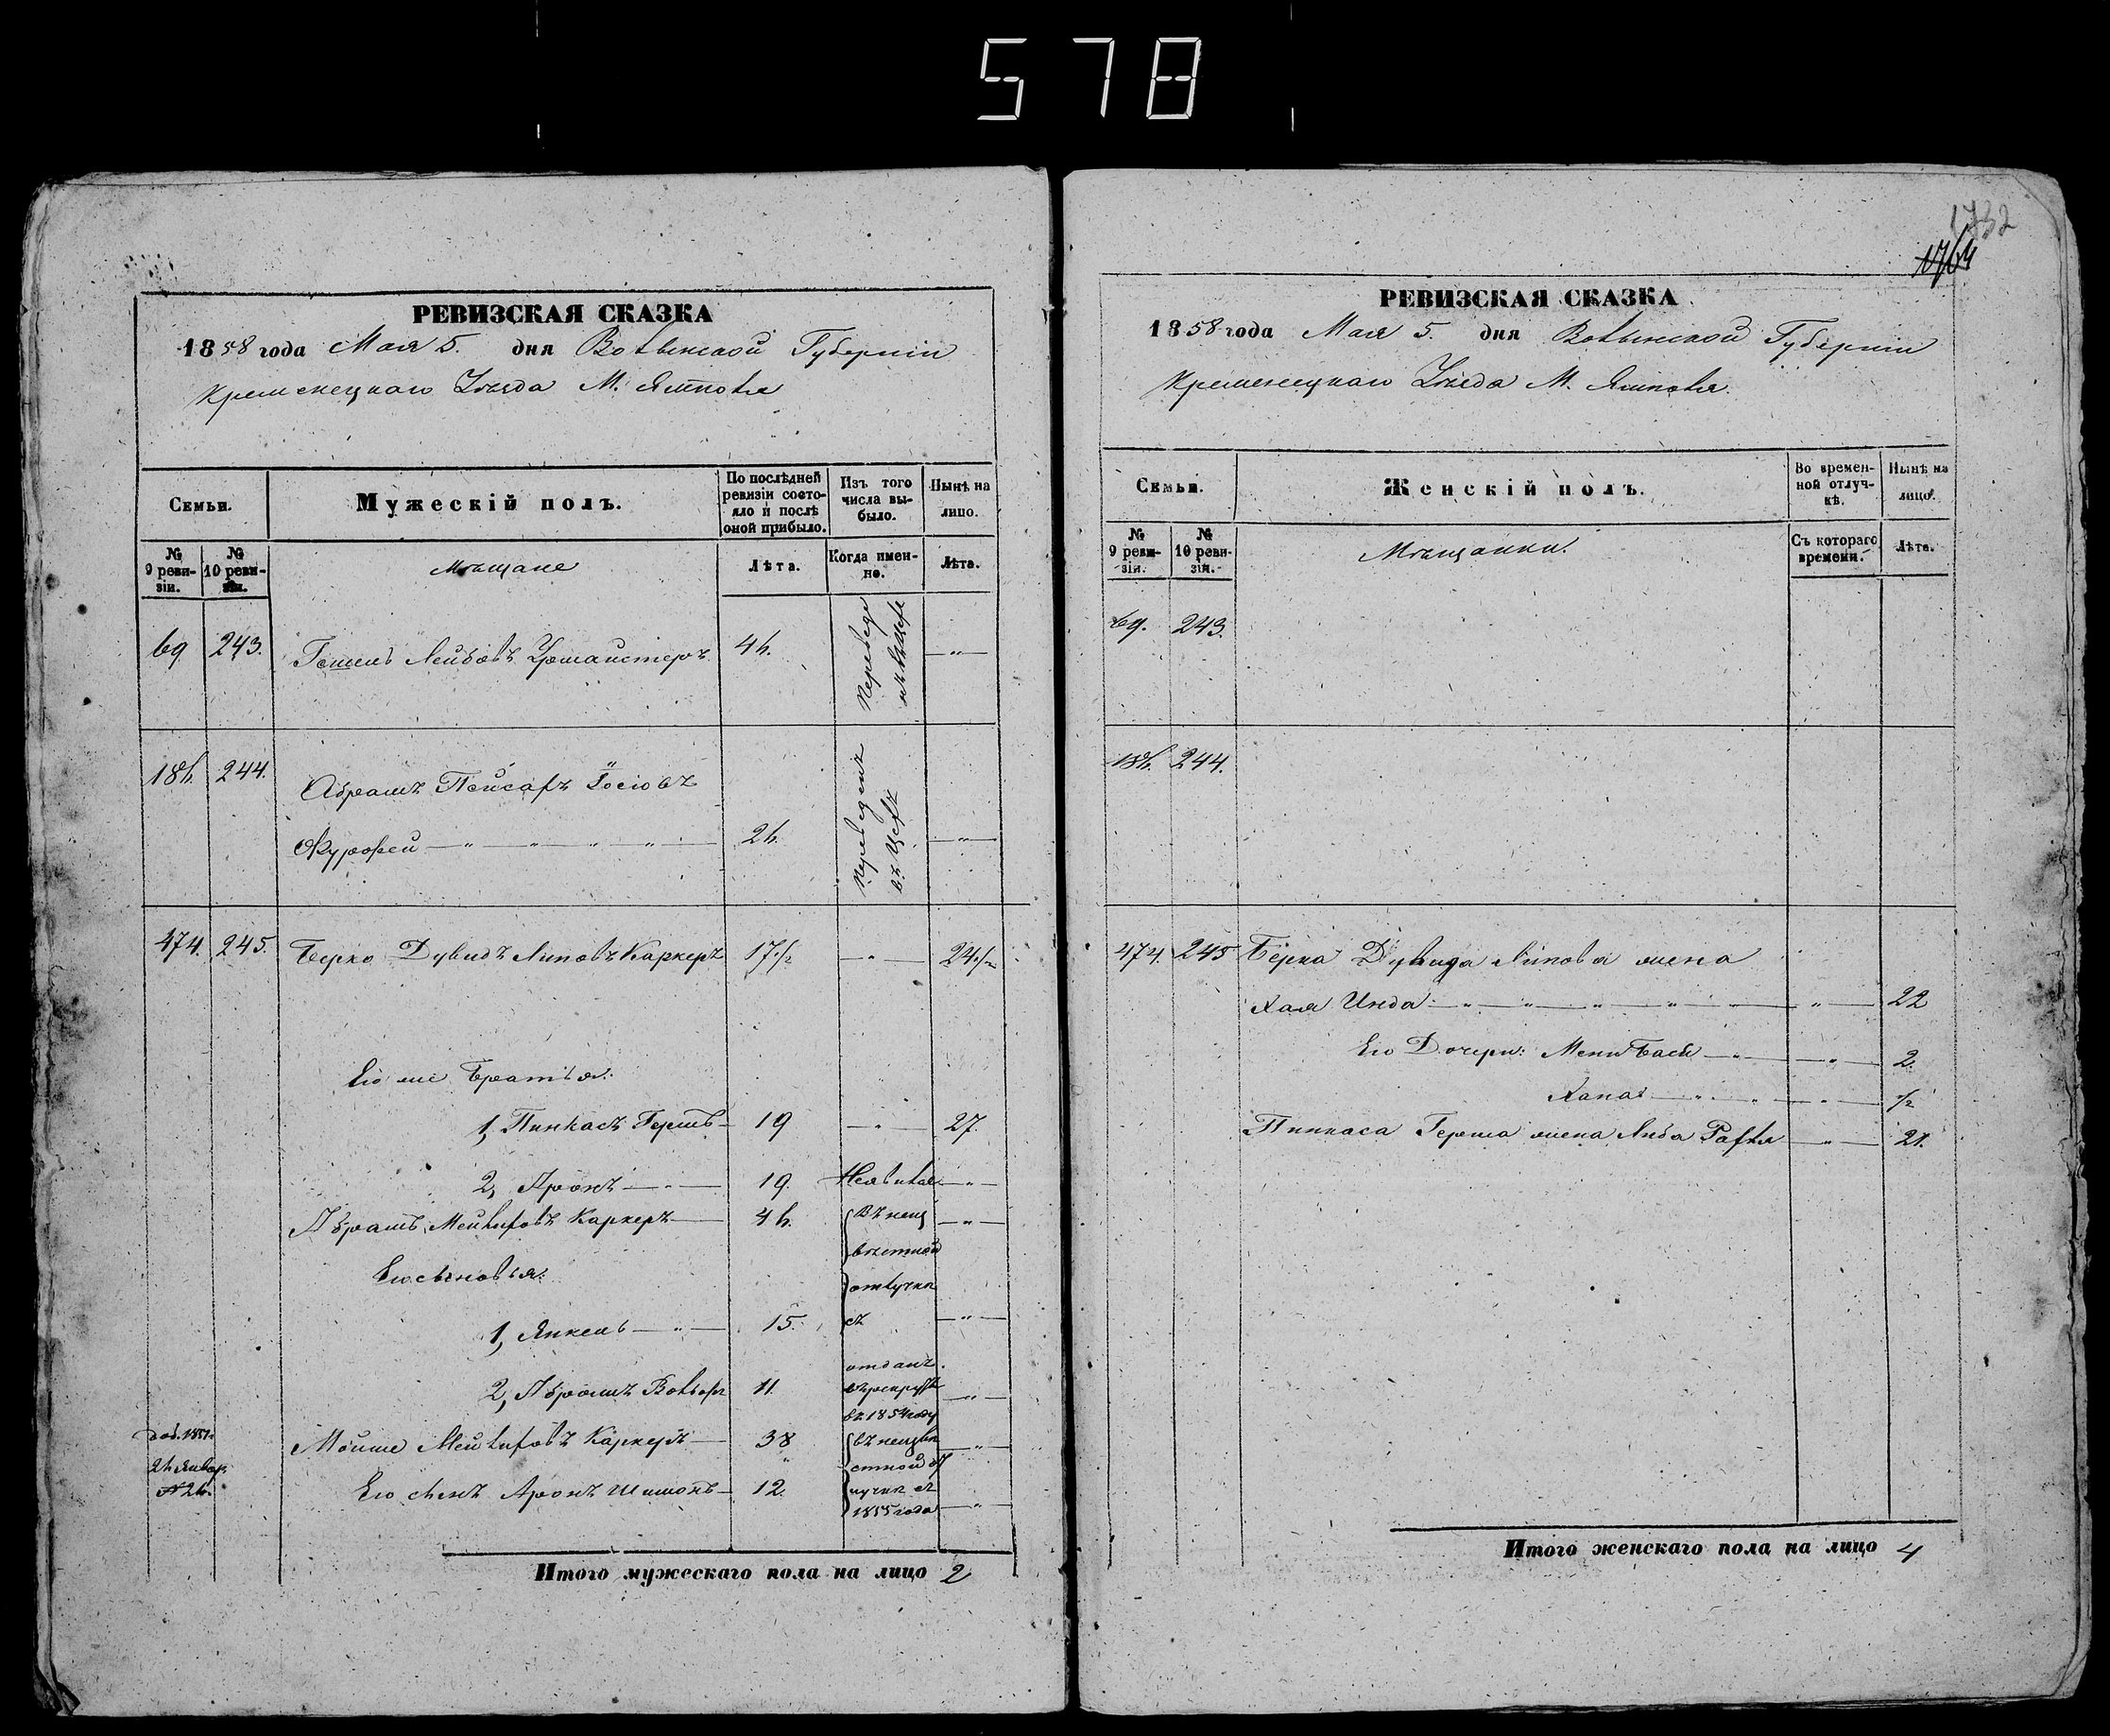 578
РЕВИЗСКАЯ СКАЗКА
1858 года Мая 5. дня Волынской Губернiи
Кременецкаго Уѣзда М. Ямполя
Семьи.
Мужескiй полъ.
По послѣдней ревизiи состояло и послѣ оной прибыло.
Изъ того числа выбыло.
Нынѣ на лицо.
№ 9 ревизiи.
№ 10 ревизiи.
Мѣщане
Лѣта.
Когда именно.
Лѣта.
69 243. Лейбовъ 46. —"—
186. 244. Абрамъ Пейсахъ Iосiовъ
Переведенъ въ Цехъ
—"—"—"—"— 26. —"—
474. 245. Берко Дувидъ Липовъ Каркеръ 17 1/2 —"— 24 1/2
Его же Братья:
1, Пинкасъ Гершъ— 19 —"— 27.
2, Аронъ—"— 19. —"—
Абрамъ Меилиховъ Каркеръ— 46. Въ неиз —"—
вѣстной
Его сыновья:
отлучкѣ
1, Янкель—"— 15. съ —"—
2, Абрамъ Вольфъ 11. отданъ
въ рекруты —"—
въ 1854 году
Доб. 1851.
26 Январ.
№ 26.
Мойше Меилиховъ Каркеръ— 38 въ неизвѣ —"—
стной от
Его сынъ Аронъ Шимонъ— 12. лучкѣ съ
1855 года —"—
Итого мужескаго пола на лицо 2
1732
1764
РЕВИЗСКАЯ СКАЗКА
1858 года Мая 5. дня Волынской Губернiи
Кременецкаго Уѣзда М. Ямполя.
Семьи.
Женскiй полъ.
Во временной отлучкѣ.
Нынѣ на лицо.
№ 9 ревизiи.
№ 10 ревизiи.
Мѣщанки.
Съ котораго времени.
Лѣта.
69. 243.
186. 244.
474. 245 Берка Дувида Липова жена
Хая Инда—"—"—"—"—"— —"— 22
Его Дочери: Мени Бася —"— —"— 2.
Хана —"—"— —"— 1/2
Пинкаса Герша жена Либа Рахля —"— 21.
Итого женскаго пола на лицо 4